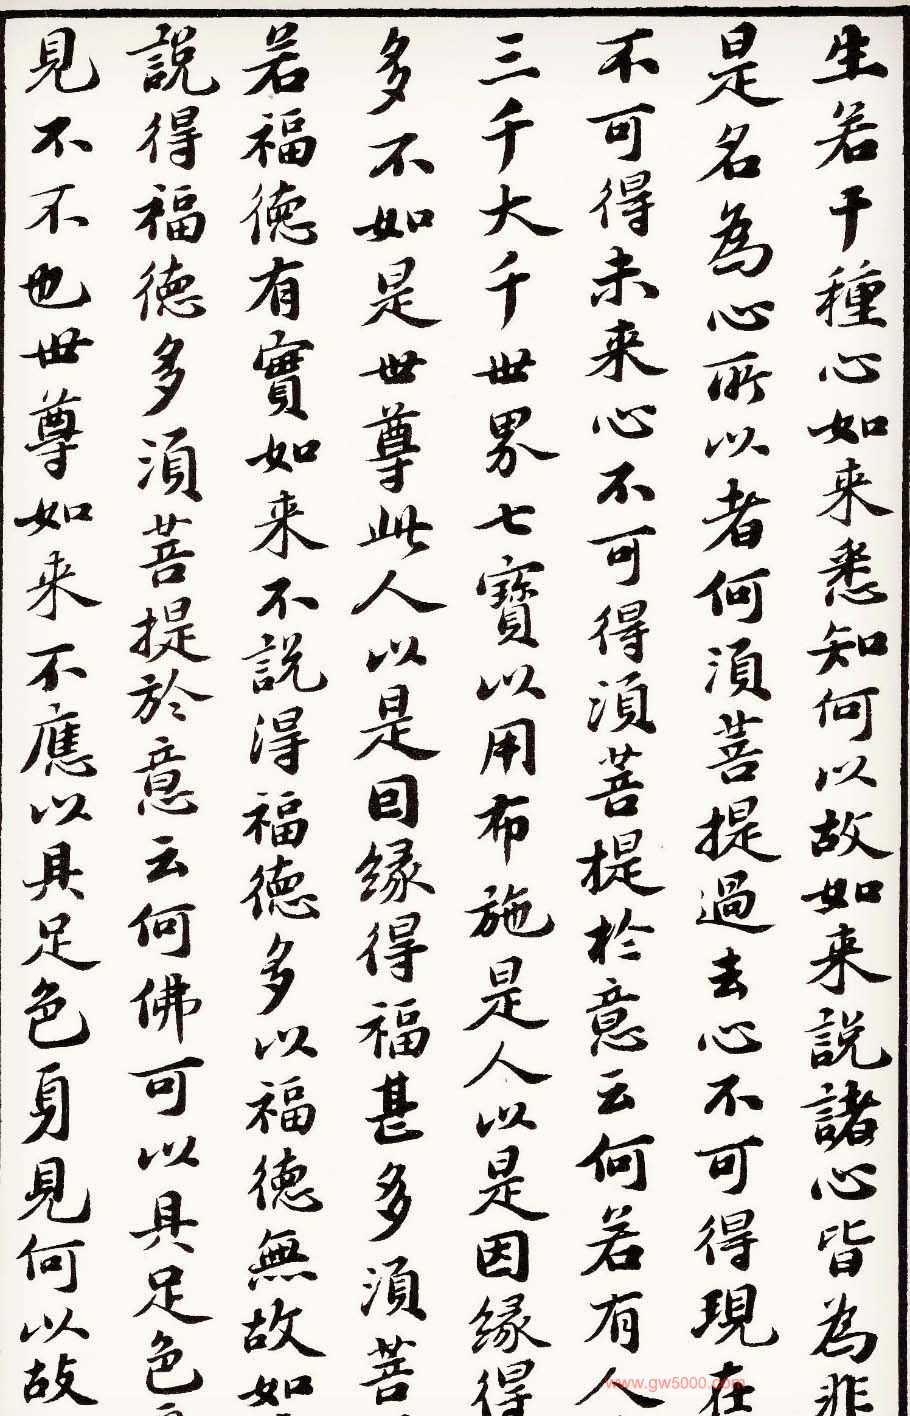 生若干種心如来悉知何以故如来説諸心皆為非
是名為心所以者何須菩提過去心不可得現在
不可得未来心不可得須菩提於意云何若有人
三千大千世界七寶以用布施是人以是因缘得
多不如是世尊此人以是因缘得福甚多須菩
若福德有實如来不説得福德多以福德無故如
説得福德多須菩提於意云何佛可以具足色
見不不也世尊如来不應以具足色身見何以故
www.gw5000.com